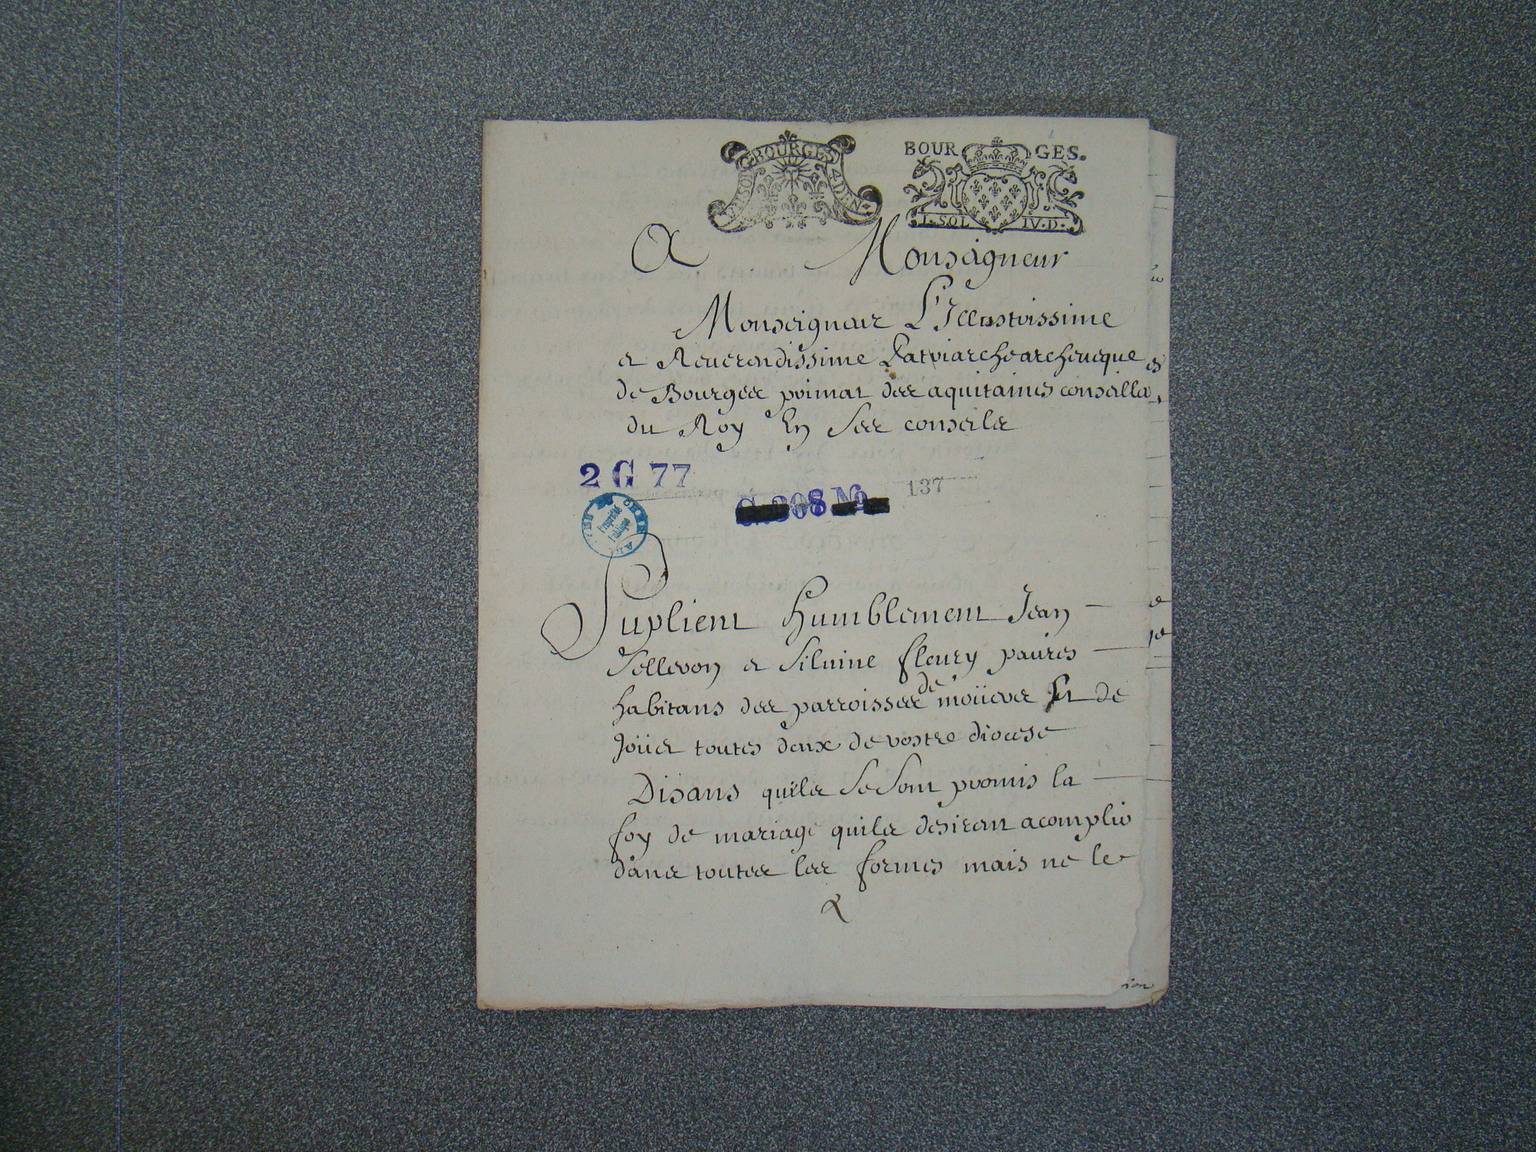 BOURGES
4 DEN.
BOURGES.
1. SOL IV. D.
A Monseigneur
Monseigneur L'Illustrissime
et Reverendissime Patriarche archeveque
de Bourges primat des aquitaines conseiller
du Roy En Ses conseils
2 G 77
308 No 137
Suplient humblement Jean
et Silvine fleury pauves
habitans des parroisses de moüeves et de
Joüet toutes deux de vostre diocese
Disans quils Se Sont promis la
foy de mariage quils desirent acomplir
dans toutes les formes mais ne le